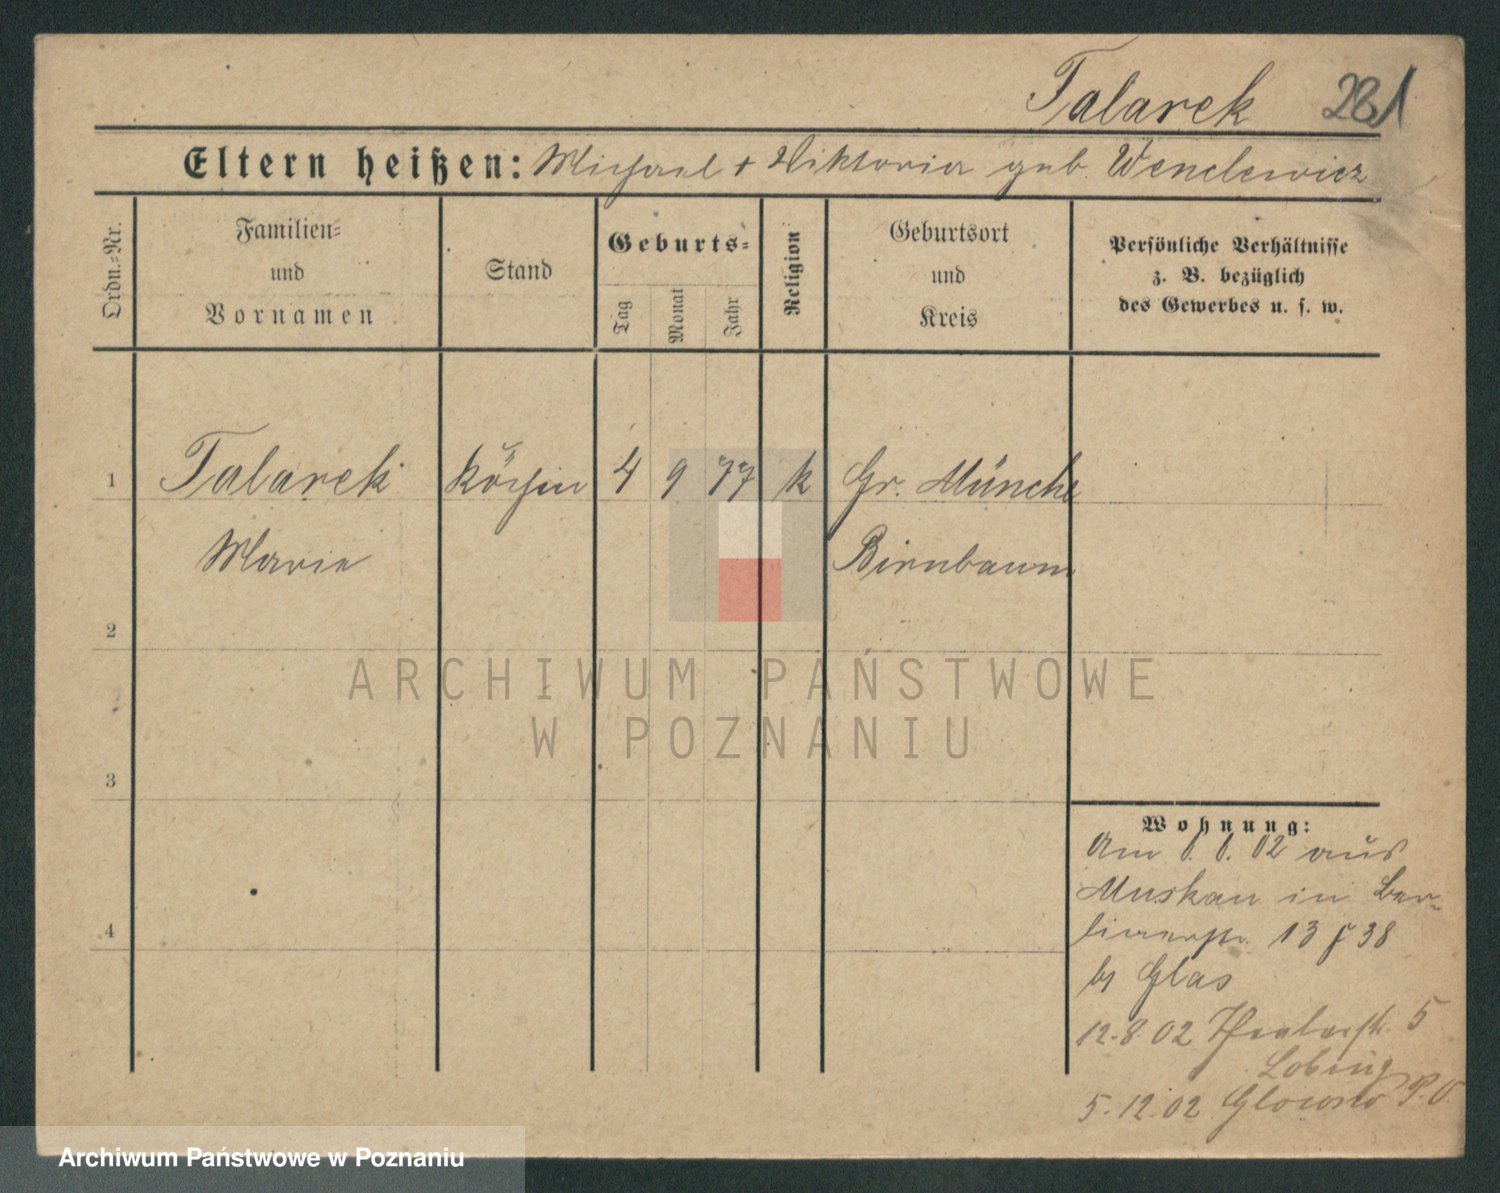 Talarek 281
Eltern heißen: Michael + Viktoria geb. Wenclewicz
Ordn.-Nr.
Familien-
und
Vornamen
Stand
Geburts-
Tag
Monat
Jahr
Religion
Geburtsort
und
Kreis
Persönliche Verhältnisse
z. B. bezüglich
des Gewerbes u. s. w.
1 Talarek Köchin 4 9 77 k Gr. Münche
Marie Birnbaum
2
3
4
Wohnung:
Am 6. 6. 02 aus
Muskau in Ber-
linerstr. 13 38
bei Glas
12.8.02 Theaterstr. 5
Lobing
5.12.02 Glowno P.O.
ARCHIWUM PAŃSTWOWE
W POZNANIU
Archiwum Państwowe w Poznaniu